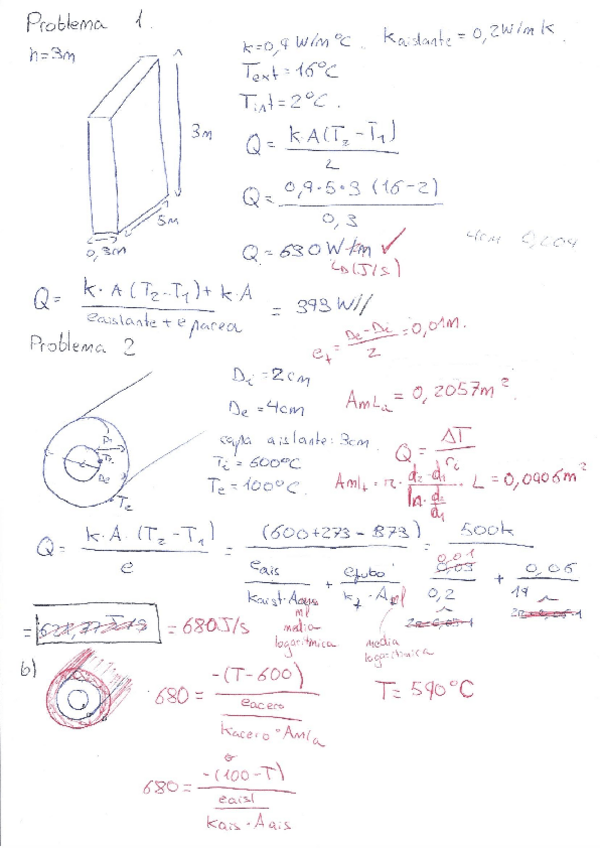 Problema 1.
h=3m
k=0,9 W/m°C. Kaislante=0,2W/mK.
Text=16°C
Tint=2°C.
3m
5m
0,3m
Q = k·A(T2-T1) / L
Q = 0,9·5·3 (16-2) / 0,3
Q = 630 W ✓
(J/s)
4cm
Q = k·A(T2-T1)+k·A / eaislante + e pared = 393 W//
Problema 2
et = De-Di / 2 = 0,01m.
Di = 2cm
De = 4cm
capa aislante: 3cm.
Ti = 600°C
Te = 100°C.
AmLa = 0,2057m²
Q = ΔT / ri
Amlt = π · d2-d1 / ln d2/d1 · L = 0,0906m²
Te
Q = k·A·(T2-T1) / e = (600+273-373) / eais / kaist·A + etubo / kt·A = 500k / 0,01 / 0,2 + 0,06 / 19
ml media logarítmica
media logarítmica
= 680J/s
b)
680 = -(T-600) / eacero / kacero·Amla
T= 590°C
o
680 = -(100-T) / eaisl / kais·Aais